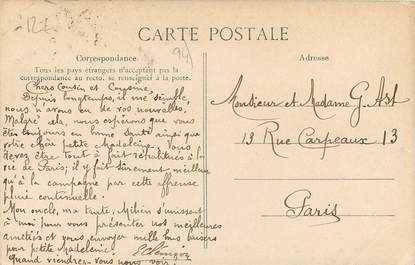 CARTE POSTALE
Correspondance
Tous les pays étrangers n'acceptent pas la
correspondance au recto, se renseigner à la poste.
Adresse
Chers Cousin et Cousine,
Depuis longtemps, il me semble,
nous n'avons eu de vos nouvelles.
Malgré cela, nous espérons que vous
êtes toujours en bonne santé ainsi que
votre chère petite Madeleine. Vous
devez être tout à fait réhabitués à la
vie de Paris; il y fait sûrement meilleur
qu'à la campagne par cette affreuse
pluie continuelle.
Mon oncle, ma tante, s'unissent
à moi pour vous présenter nos meilleures
amitiés et vous envoyer mille bons baisers
pour petite Madeleine.
Quand viendrez-vous nous voir?
Monsieur et Madame G. Ast
13 Rue Carpeaux 13
Paris